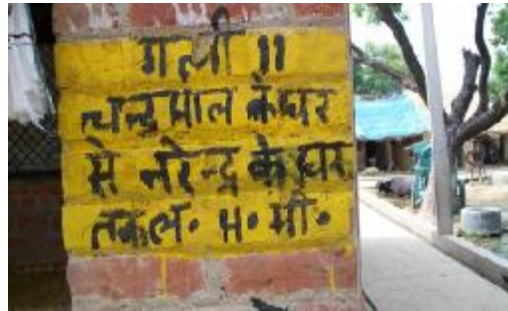 गली 11
चन्द्रपाल के घर
से नरेन्द्र के घर
तक ल॰ 11॰ मी॰